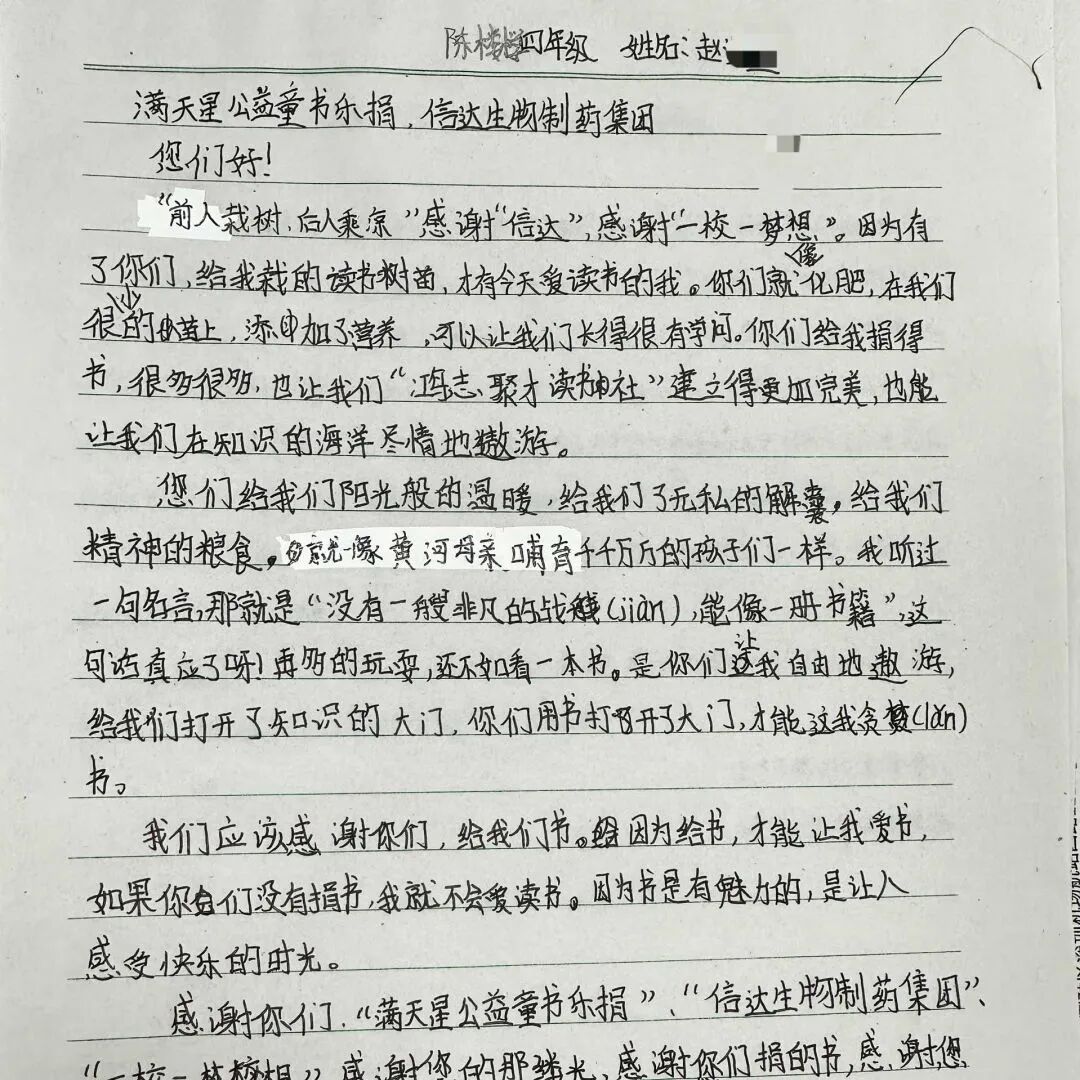 陈楼学四年级 姓名:赵
满天星公益童书乐捐,信达生物制药集团
您们好!
“前人栽树,后人乘凉”感谢“信达”,感谢“一校一梦想”。因为有
了你们,给我栽的读书树苗,才有今天爱读书的我。你们就像化肥,在我们
很小的苗上,添加了营养,可以让我们长得很有学问。你们给我捐得
书,很多很多,也让我们“鸿志聚才读书社”建立得更加完美,也能
让我们在知识的海洋尽情地遨游。
您们给我们阳光般的温暖,给我们了无私的解囊,给我们
精神的粮食。就像黄河母亲哺育千千万万的孩子们一样。我听过
一句名言,那就是“没有一艘非凡的战舰(jiàn),能像一册书籍”,这
句话真应了呀!再多的玩耍,还不如看一本书。是你们让我自由地遨游,
给我们打开了知识的大门,你们用书打开了大门,才能这我贪婪(lán)
书。
我们应该感谢你们,给我们书。因为给书,才能让我爱书,
如果你们没有捐书,我就不会爱读书。因为书是有魅力的,是让人
感受快乐的时光。
感谢你们,“满天星公益童书乐捐”、“信达生物制药集团”、
“一校一梦想”感谢您的那缕光,感谢你们捐的书,感谢您